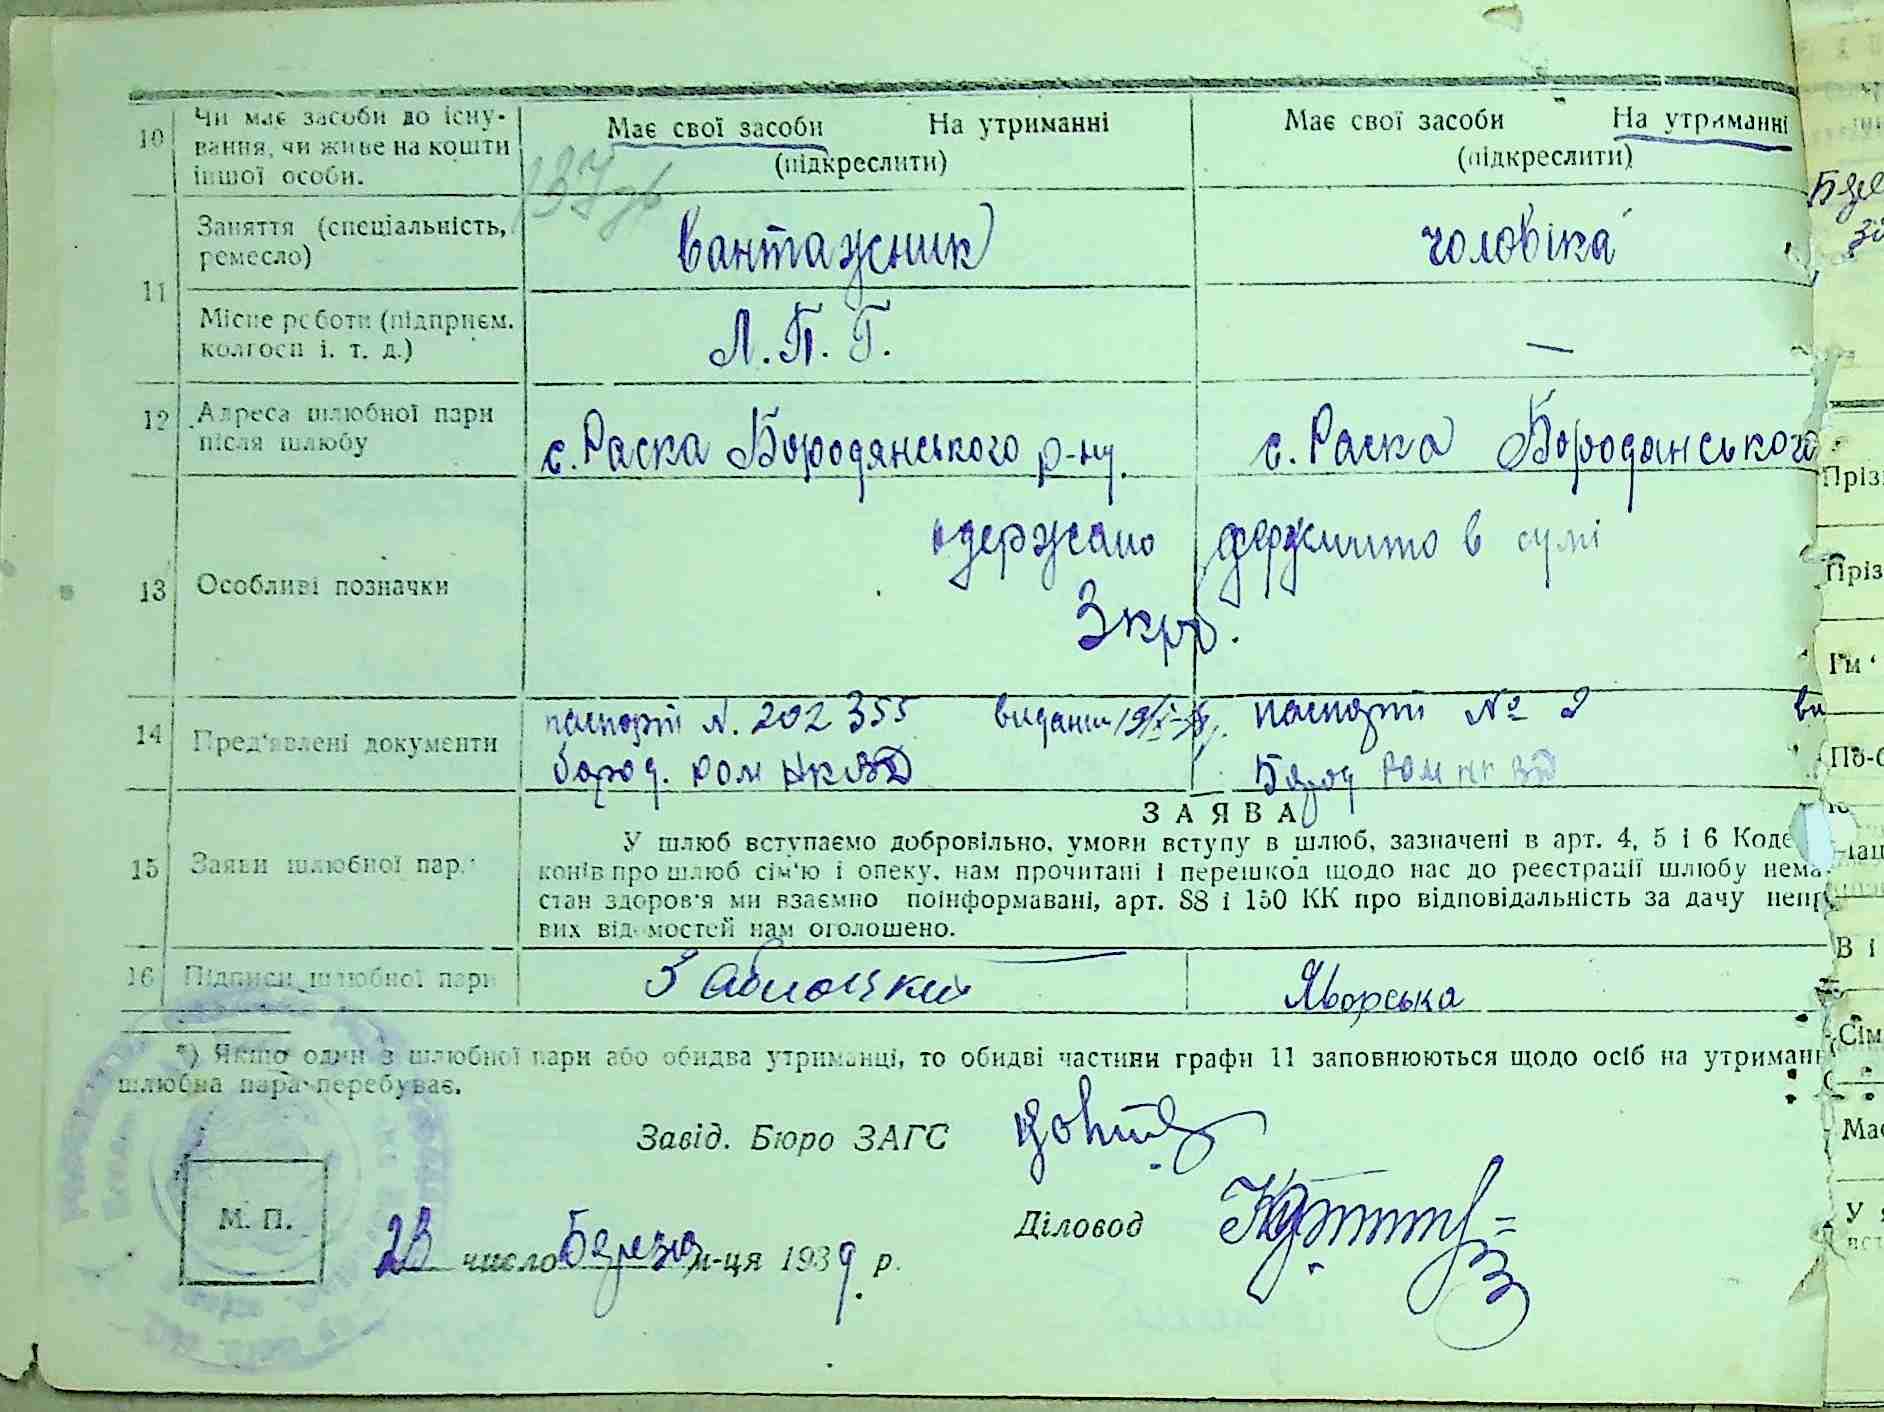 10 Чи має засоби до існу-
вання, чи живе на кошти
іншої особи.
Має свої засоби На утриманні
(підкреслити)
Має свої засоби На утриманні
(підкреслити)
11 Заняття (спеціальність,
ремесло)
вантажник
чоловіка
Місце роботи (підприєм.
колгосп і. т. д.)
Л. П. Г.
—
12 Адреса шлюбної пари
після шлюбу
с. Раска Бородянського р-ну.
с. Раска Бородянського
13 Особливі позначки
одержано держмито в сумі
3 крб.
14 Пред'явлені документи
паспорт N. 202355 видании
Бород. РОМ НКВД
паспорт № 2
Бород РОМ НКВД
15 Заяви шлюбної пари
ЗАЯВА
У шлюб вступаємо добровільно, умови вступу в шлюб, зазначені в арт. 4, 5 і 6 Коде
конів про шлюб сім'ю і опеку, нам прочитані і перешкод щодо нас до реєстрації шлюбу нема
стан здоров'я ми взаємно поінформавані, арт. 88 і 150 КК про відповідальність за дачу непр
вих відомостей нам оголошено.
16 Підписи шлюбної пари
Заблоцкий
Яворська
*) Якщо один з шлюбної пари або обидва утриманці, то обидві частини графи 11 заповнюються щодо осіб на утриманн
шлюбна пара перебуває.
Завід. Бюро ЗАГС
Діловод
М. П.
23 число Березня м-ця 1939 р.
Пріз
Пріз
Ім'
По-б
В і
Сім
Мас
У я